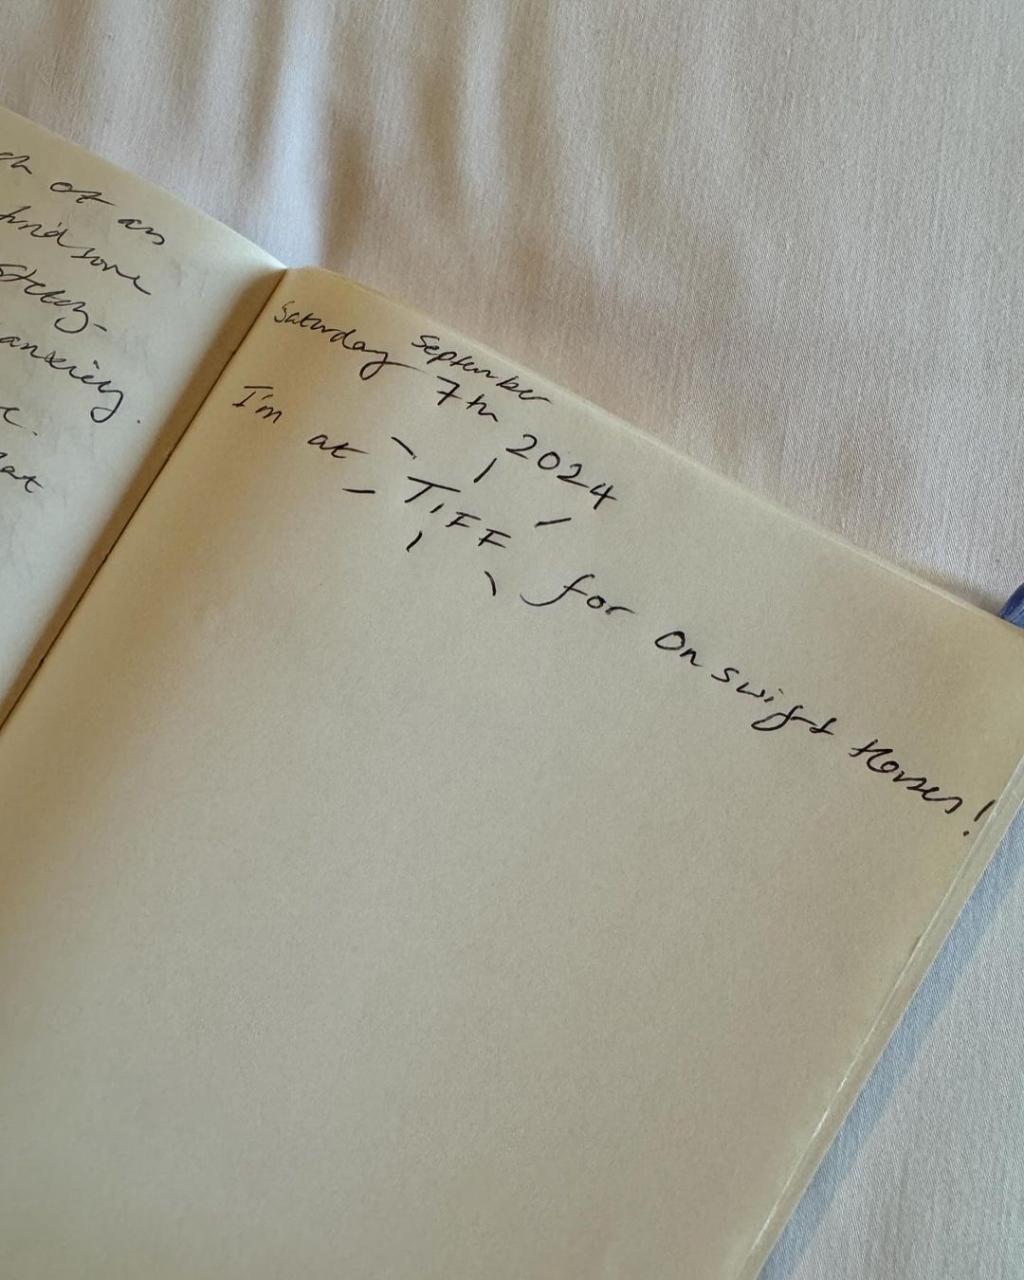 of an
find some
anxiety.
Saturday September
7th 2024
I'm at TIFF for On Swift Horses!